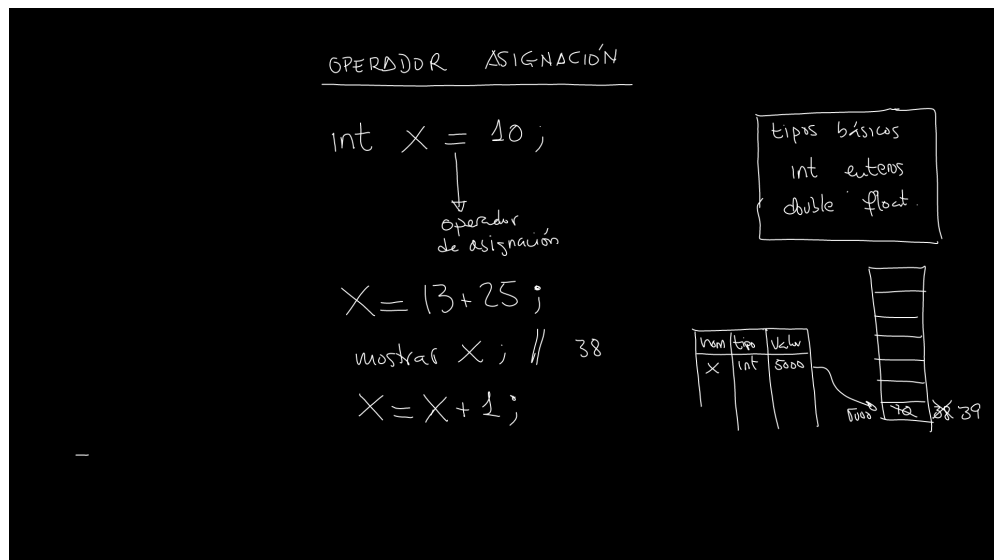 OPERADOR ASIGNACIÓN
int X = 10;
operador
de asignación
X = 13+25;
mostrar X; // 38
X = X + 1;
tipos básicos
int enteros
double float.
nom tipo valor
X int 5000
5000 10 38 39